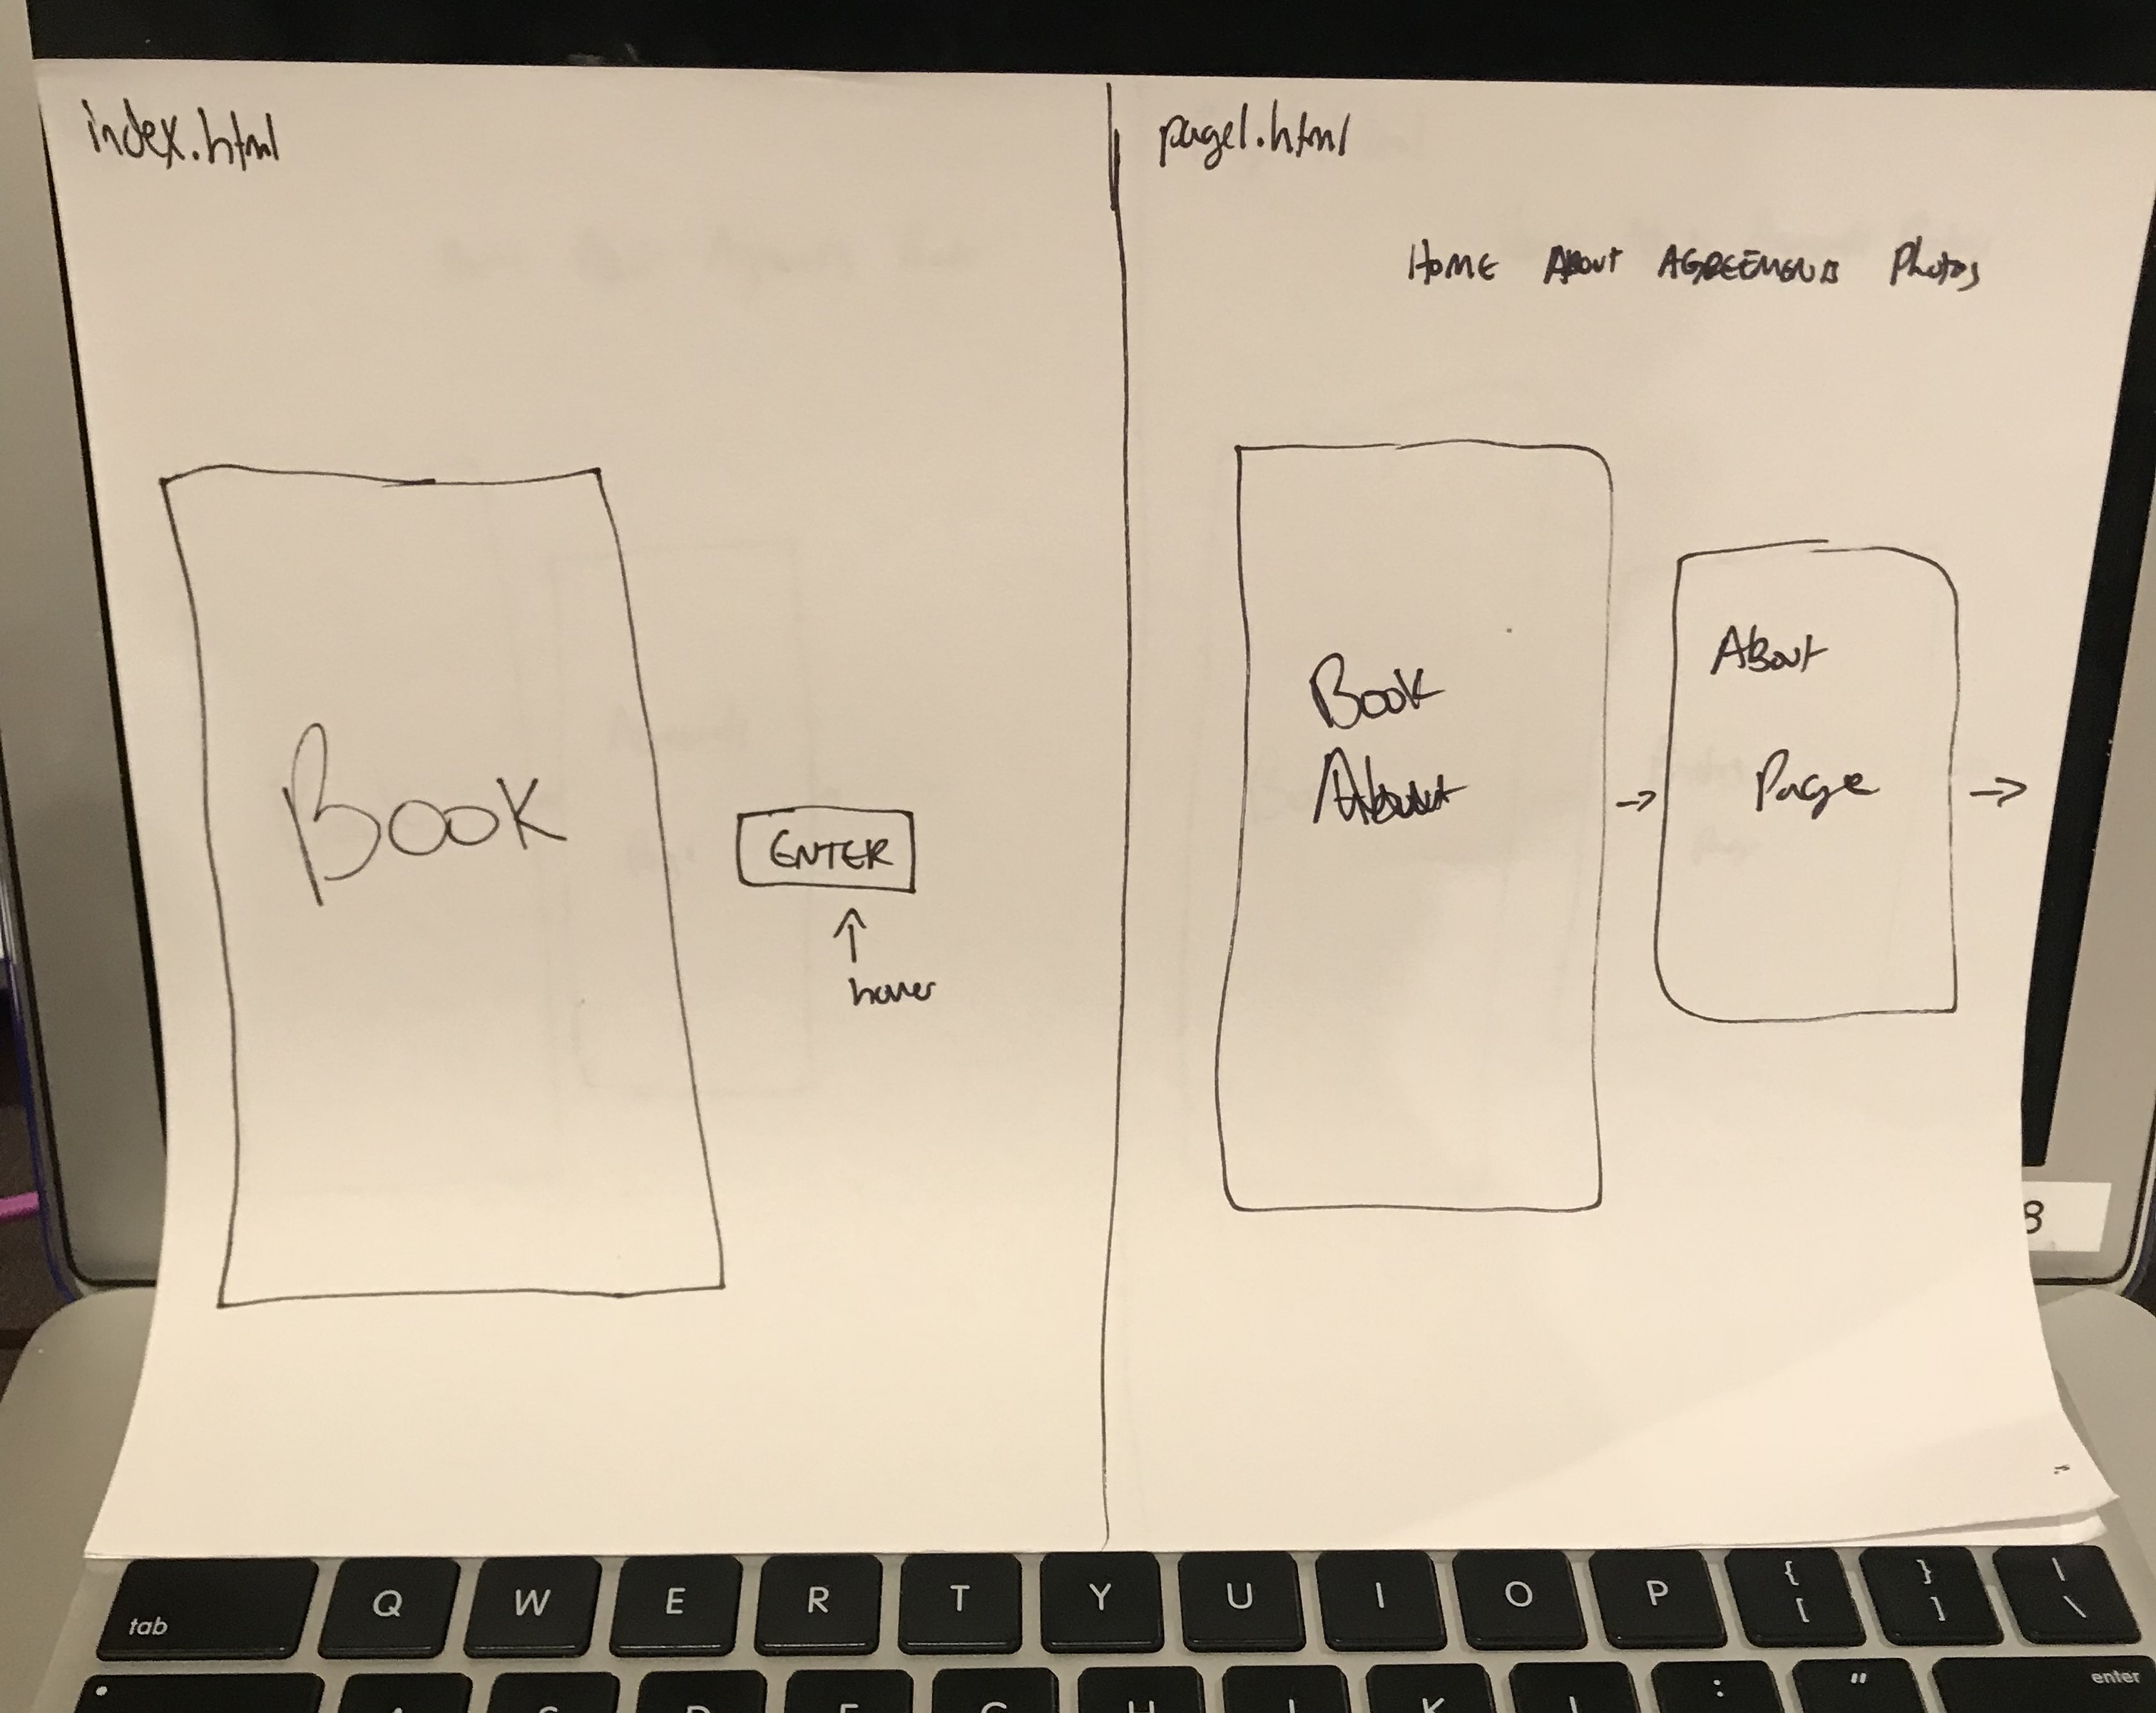 index.html
Book
ENTER
hover
page1.html
HOME ABOUT AGREEMENTS Photos
Book
About
About
Page
8
tab Q W E R T Y U I O P { [ } ] | \
: " enter